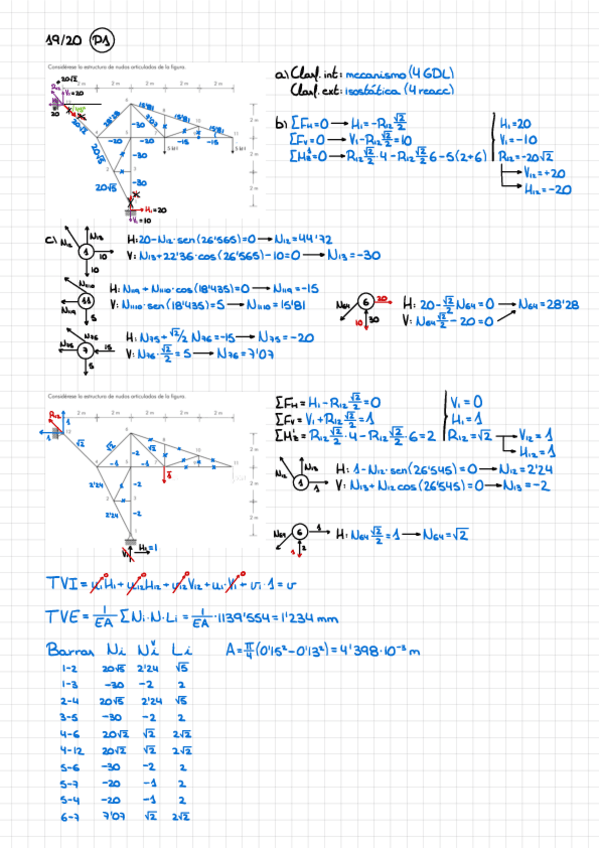 19/20 P1
Considérese la estructura de nudos articulados de la figura.
2 m 2 m 2 m 2 m
a) Clasf. int: mecanismo (4 GDL)
Clasf. ext: isostática (4 reacc)
b) ΣFH=0 → H1=-R12 √2/2
ΣFV=0 → V1-R12 √2/2=10
R12 √2/2·4-R12 √2/2 6-5(2+6)
H1=20
V1=-10
R12=-20√2
V12=+20
H12=-20
5 kN 5 kN
H1=20
V1=10
c) H: 20-N12·sen(26'565)=0 → N12=44'72
V: N13+22'36·cos(26'565)-10=0 → N13=-30
H: N119+N1110·cos(18'435)=0 → N119=-15
V: N1110·sen(18'435)=5 → N1110=15'81
H: 20-√2/2 N64=0 → N64=28'28
V: N64 √2/2-20=0
H: N75+√2/2 N76=-15 → N75=-20
V: N76·√2/2=5 → N76=7'07
Considérese la estructura de nudos articulados de la figura.
2 m 2 m 2 m 2 m
ΣFH=H1-R12 √2/2=0
ΣFV=V1+R12 √2/2=1
R12 √2/2·4-R12 √2/2·6=2
V1=0
H1=1
R12=√2
V12=1
H12=1
H: 1-N12·sen(26'545)=0 → N12=2'24
V: N13+N12 cos(26'545)=0 → N13=-2
H: N64 √2/2=1 → N64=√2
H1=1
TVI=u1H1+u12H12+v12V12+u1·V1+v1·1=v
TVE=1/EA ΣNi·N·Li=1/EA·1139'554=1'234 mm
Barras Ni Niᵛ Li A=π/4(0'15²-0'13²)=4'398·10⁻³ m
1-2 20√5 2'24 √5
1-3 -30 -2 2
2-4 20√5 2'24 √5
3-5 -30 -2 2
4-6 20√2 √2 2√2
4-12 20√2 √2 2√2
5-6 -30 -2 2
5-7 -20 -1 2
5-4 -20 -1 2
6-7 7'07 √2 2√2